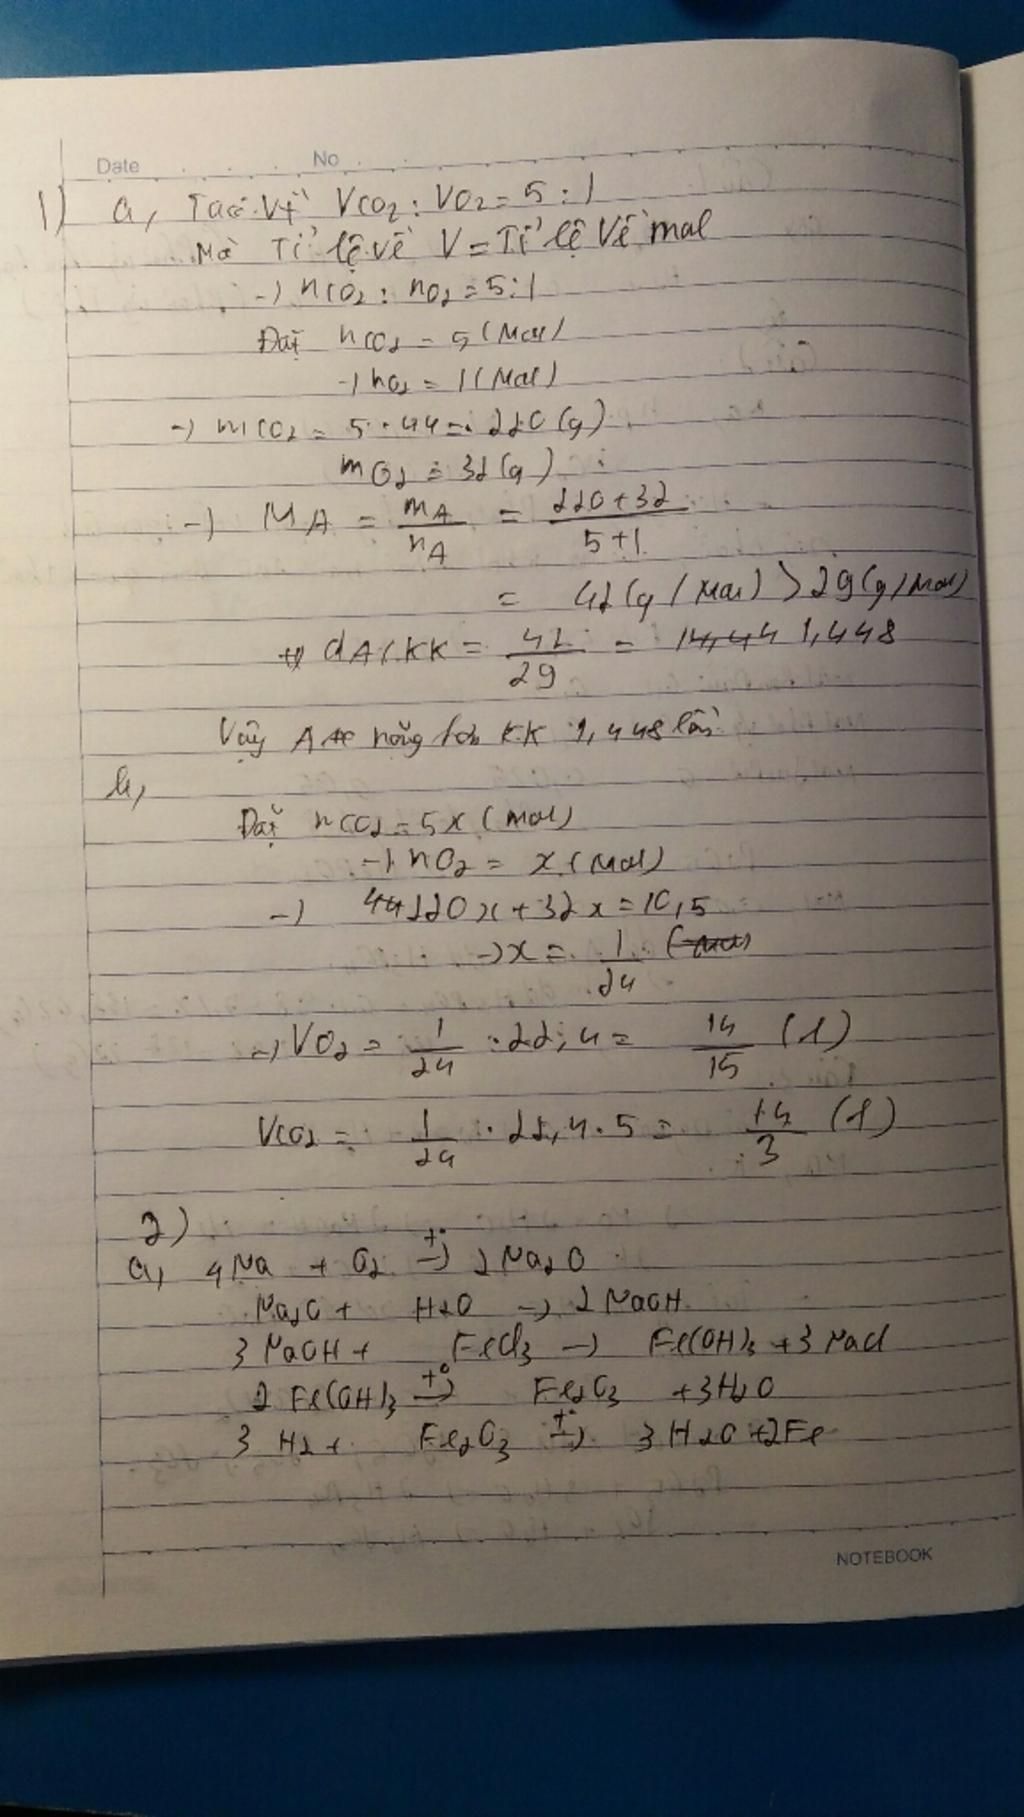 Date No
1) a, Ta có: Vì VCO2 : VO2 = 5 : 1
Mà Tỉ lệ về V = Tỉ lệ về mol
-> nCO2 : nO2 = 5 : 1
Đặt nCO2 = 5 (mol)
-> nO2 = 1 (mol)
-> mCO2 = 5 . 44 = 220 (g)
mO2 = 32 (g)
-> MA = mA/nA = (220+32)/(5+1)
= 42 (g/mol) > 29 (g/mol)
dA/KK = 42/29 = 14,44 1,448
Vậy A nặng hơn KK 1,448 lần
b,
Đặt nCO2 = 5x (mol)
-> nO2 = x (mol)
-> 44 220x + 32x = 10,5
-> x = 1/24
-> VO2 = 1/24 . 22,4 = 14/15 (l)
VCO2 = 1/24 . 22,4 . 5 = 14/3 (l)
2)
a, 4Na + O2 t°-> 2Na2O
Na2O + H2O -> 2NaOH
3NaOH + FeCl3 -> Fe(OH)3 + 3NaCl
2Fe(OH)3 t°-> Fe2O3 + 3H2O
3H2 + Fe2O3 t°-> 3H2O + 2Fe
NOTEBOOK